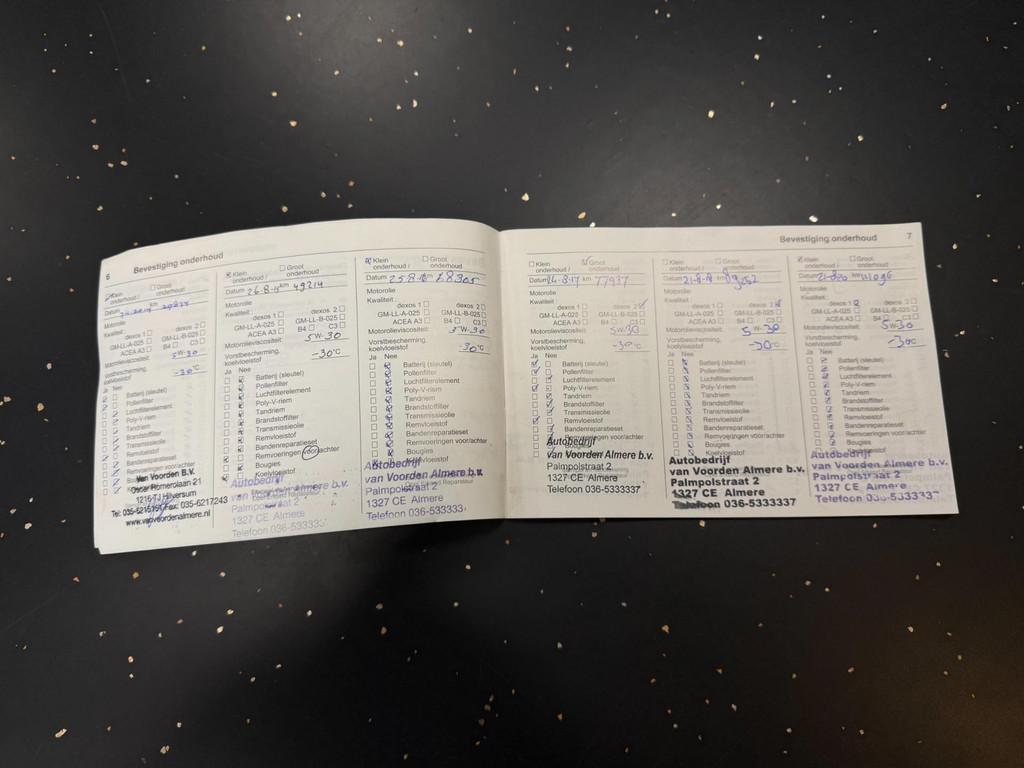 6
Bevestiging onderhoud
Klein onderhoud /
Groot onderhoud
Datum
km
Motorolie
Kwaliteit:
dexos 1
dexos 2
GM-LL-A-025
GM-LL-B-025
ACEA A3
B4
C3
Motorolieviscositeit:
5W-30
Vorstbescherming, koelvloeistof
-30°C
Ja Nee
Batterij (sleutel)
Pollenfilter
Luchtfilterelement
Poly-V-riem
Tandriem
Brandstoffilter
Transmissieolie
Remvloeistof
Bandenreparatieset
Remvoeringen voor/achter
Van Voorden B.V.
Oscar Romerolaan 21
1216 TJ Hilversum
www.vanvoordenalmere.nl
Klein onderhoud /
Groot onderhoud
Datum 26-8-15 km 49214
Motorolie
Kwaliteit:
dexos 1
dexos 2
GM-LL-A-025
GM-LL-B-025
ACEA A3
B4
C3
Motorolieviscositeit:
5W-30
Vorstbescherming, koelvloeistof
-30°C
Ja Nee
Batterij (sleutel)
Pollenfilter
Luchtfilterelement
Poly-V-riem
Tandriem
Brandstoffilter
Transmissieolie
Remvloeistof
Bandenreparatieset
Remvoeringen voor/achter
Bougies
Koelvloeistof
Autobedrijf
van Voorden Almere b.v.
Palmpolstraat 2
1327 CE Almere
Telefoon 036-533333
Klein onderhoud /
Groot onderhoud
Datum 25-8-16 km
Motorolie
Kwaliteit:
dexos 1
dexos 2
GM-LL-A-025
GM-LL-B-025
ACEA A3
B4
C3
Motorolieviscositeit:
5W-30
Vorstbescherming, koelvloeistof
-30°C
Ja Nee
Batterij (sleutel)
Pollenfilter
Luchtfilterelement
Poly-V-riem
Tandriem
Brandstoffilter
Transmissieolie
Remvloeistof
Bandenreparatieset
Remvoeringen voor/achter
Bougies
Autobedrijf
van Voorden Almere b.v.
Palmpolstraat 2
1327 CE Almere
Telefoon 036-533333
Bevestiging onderhoud
7
Klein onderhoud /
Groot onderhoud
Datum 24-8-17 km 77937
Motorolie
Kwaliteit:
dexos 1
dexos 2
GM-LL-A-025
GM-LL-B-025
ACEA A3
B4
C3
Motorolieviscositeit:
5W30
Vorstbescherming, koelvloeistof
-30°C
Ja Nee
Batterij (sleutel)
Pollenfilter
Luchtfilterelement
Poly-V-riem
Tandriem
Brandstoffilter
Transmissieolie
Remvloeistof
Bandenreparatieset
Remvoeringen voor/achter
Autobedrijf
van Voorden Almere b.v.
Palmpolstraat 2
1327 CE Almere
Telefoon 036-5333337
Klein onderhoud /
Groot onderhoud
Datum 21-8-18
Motorolie
Kwaliteit:
dexos 1
dexos 2
GM-LL-A-025
GM-LL-B-025
ACEA A3
B4
C3
Motorolieviscositeit:
5W-30
Vorstbescherming, koelvloeistof
-30°C
Ja Nee
Batterij (sleutel)
Pollenfilter
Luchtfilterelement
Poly-V-riem
Tandriem
Brandstoffilter
Transmissieolie
Remvloeistof
Bandenreparatieset
Remvoeringen voor/achter
Bougies
Autobedrijf
van Voorden Almere b.v.
Palmpolstraat 2
1327 CE Almere
Telefoon 036-5333337
Klein onderhoud /
Groot onderhoud
Datum
Motorolie
Kwaliteit:
dexos 1
dexos 2
GM-LL-A-025
GM-LL-B-025
ACEA A3
B4
C3
Motorolieviscositeit:
5W-30
Vorstbescherming, koelvloeistof
-30°C
Ja Nee
Batterij (sleutel)
Pollenfilter
Luchtfilterelement
Poly-V-riem
Tandriem
Brandstoffilter
Transmissieolie
Remvloeistof
Bandenreparatieset
Remvoeringen voor/achter
Bougies
Autobedrijf
van Voorden Almere b.v.
Palmpolstraat 2
1327 CE Almere
Telefoon